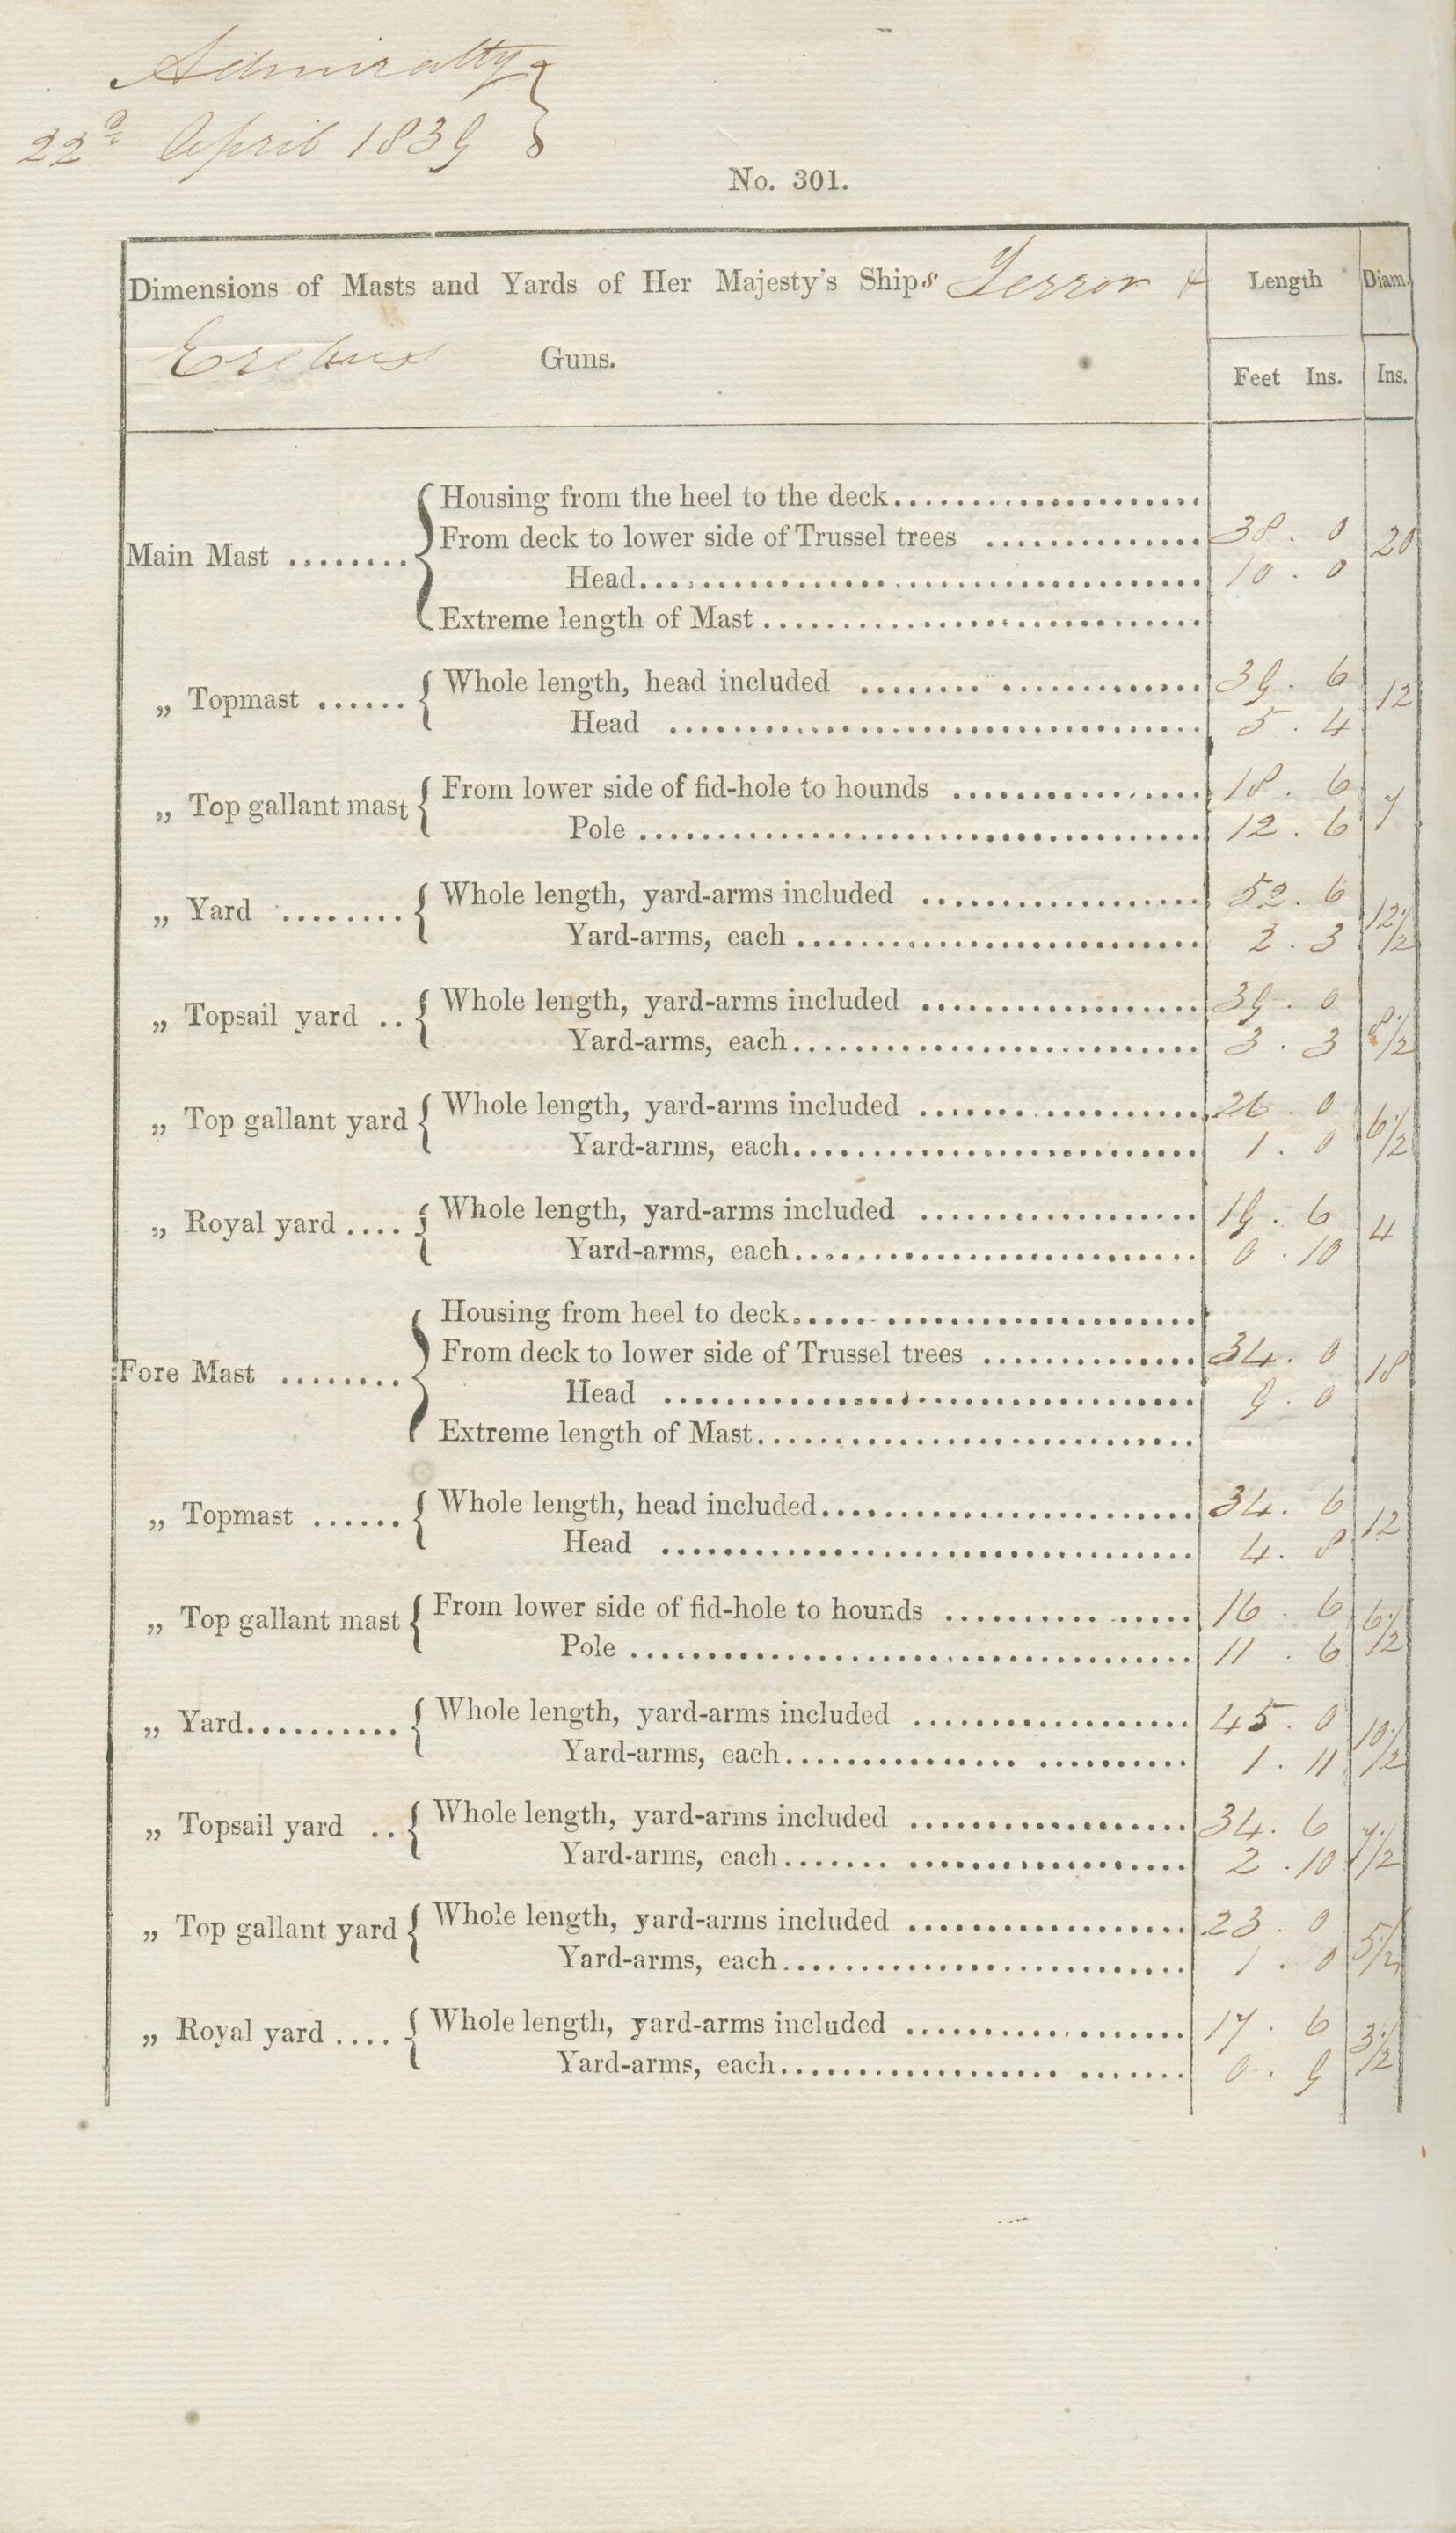 Admiralty }
22d April 1839
No. 301.
Dimensions of Masts and Yards of Her Majesty's Ships Terror & Length Diam.
Erebus Guns. Feet Ins. Ins.
Housing from the heel to the deck
Main Mast { From deck to lower side of Trussel trees 38 . 0 20
Head 10 . 0
Extreme length of Mast
„ Topmast { Whole length, head included 39 . 6 12
Head 5 . 4
„ Top gallant mast { From lower side of fid-hole to hounds 18 . 6 7
Pole 12 . 6
„ Yard { Whole length, yard-arms included 52 . 6 12 1/2
Yard-arms, each 2 . 3
„ Topsail yard { Whole length, yard-arms included 39 . 0 8 1/2
Yard-arms, each 3 . 3
„ Top gallant yard { Whole length, yard-arms included 26 . 0 6 1/2
Yard-arms, each 1 . 0
„ Royal yard { Whole length, yard-arms included 19 . 6 4
Yard-arms, each 0 . 10
Housing from heel to deck
Fore Mast { From deck to lower side of Trussel trees 34 . 0 18
Head 9 . 0
Extreme length of Mast
„ Topmast { Whole length, head included 34 . 6 12
Head 4 . 8
„ Top gallant mast { From lower side of fid-hole to hounds 16 . 6 6 1/2
Pole 11 . 6
„ Yard { Whole length, yard-arms included 45 . 0 10 1/2
Yard-arms, each 1 . 11
„ Topsail yard { Whole length, yard-arms included 34 . 6 7 1/2
Yard-arms, each 2 . 10
„ Top gallant yard { Whole length, yard-arms included 23 . 0 5 1/2
Yard-arms, each 1 . 0
„ Royal yard { Whole length, yard-arms included 17 . 6 3 1/2
Yard-arms, each 0 . 9